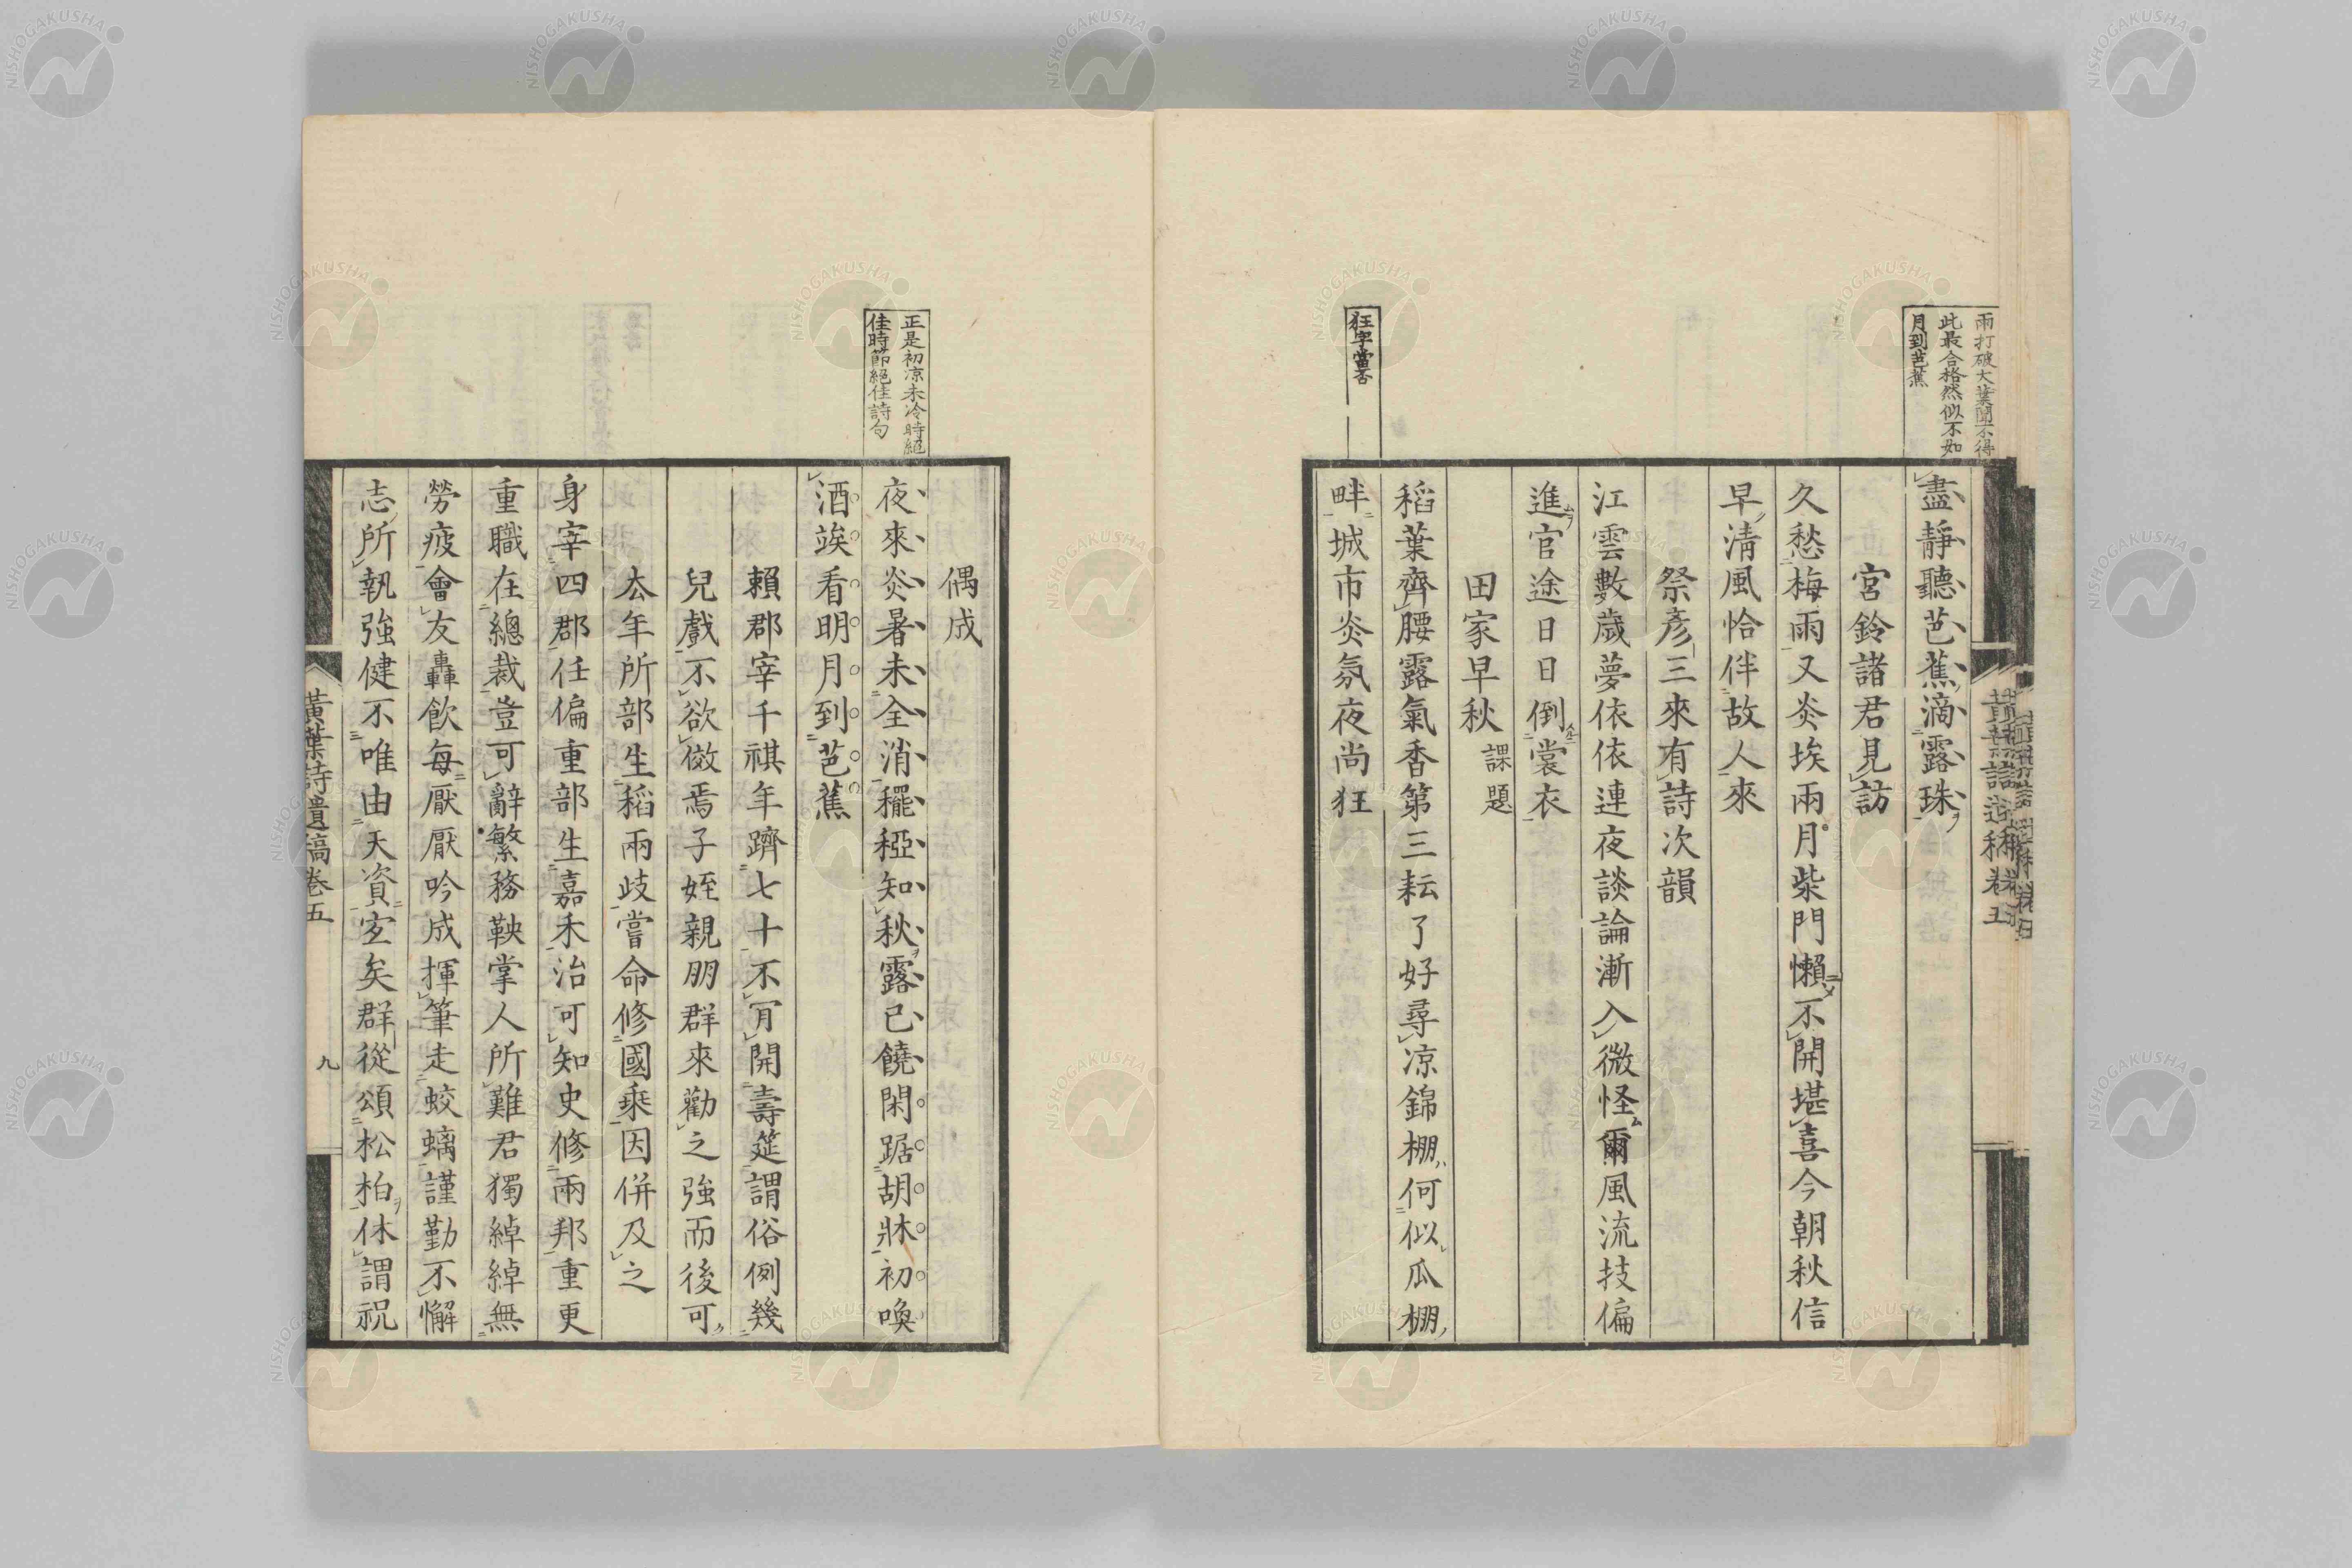 雨打破大葉聞不得
此最合格然似不如
月到芭蕉
盡靜聽芭蕉滴露珠
宮鈴諸君見訪
久愁梅雨又炎埃兩月柴門懶不開堪喜今朝秋信
早淸風恰伴故人來
祭彥三來有詩次韻
江雲數歲夢依依連夜談論漸入微怪爾風流技偏
進官途日日倒裳衣
田家早秋 課題
稻葉齊腰露氣香第三耘了好尋凉錦棚何似瓜棚
畔城市炎氛夜尚狂
狂字當否
偶成
正是初凉未冷時絕
佳時節絕佳詩句
夜來炎暑未全消䆉稏知秋露已饒閑踞胡牀初喚
酒竢看明月到芭蕉
賴郡宰千祺年躋七十不肎開壽筵謂俗例幾
兒戲不欲傚焉子姪親朋群來勸之強而後可
厺年所部生稻兩歧嘗命修國乘因併及之
身宰四郡任偏重部生嘉禾治可知史修兩邦重更
重職在總裁豈可辭繁務鞅掌人所難君獨綽綽無
勞疲會友轟飮每厭厭吟成揮筆走蛟螭謹勤不懈
志所執強健不唯由天資宐矣群從頌松柏休謂祝
黃葉詩遺稿卷五
九